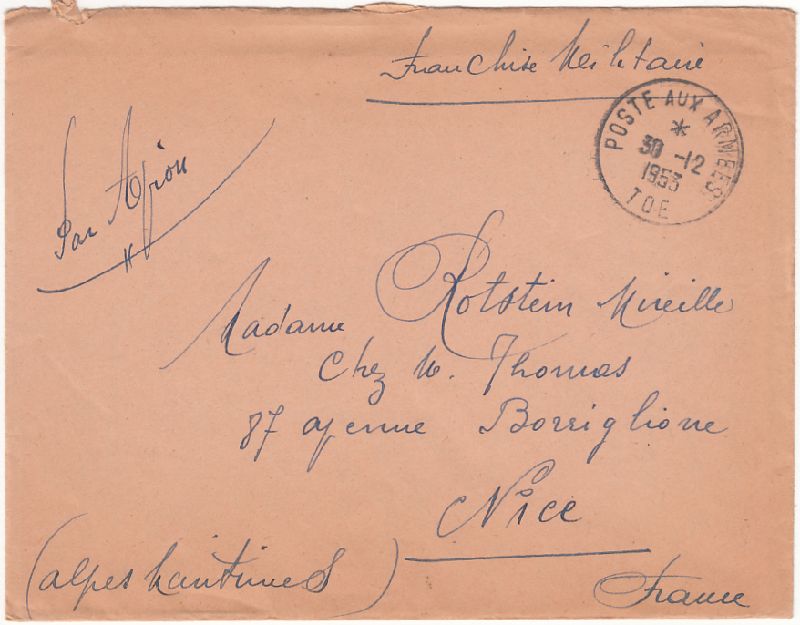 Franchise Militaire
POSTE AUX ARMÉES
*
30 -12
1953
TOE
Par Avion
Madame Rotstein Mireille
Chez M. Thomas
87 avenue Borriglione
Nice
(alpes Maritimes)
France